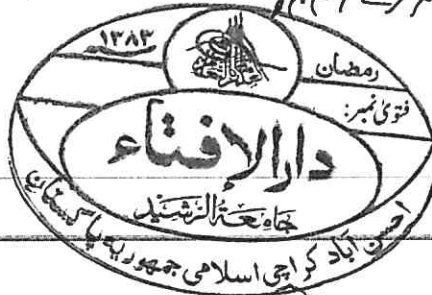 ١٣٨٣
رمضان
فتویٰ نمبر:
دارالإفتاء
جامعة الرشيد
احسن آباد کراچی اسلامی جمهوریہ پاکستان